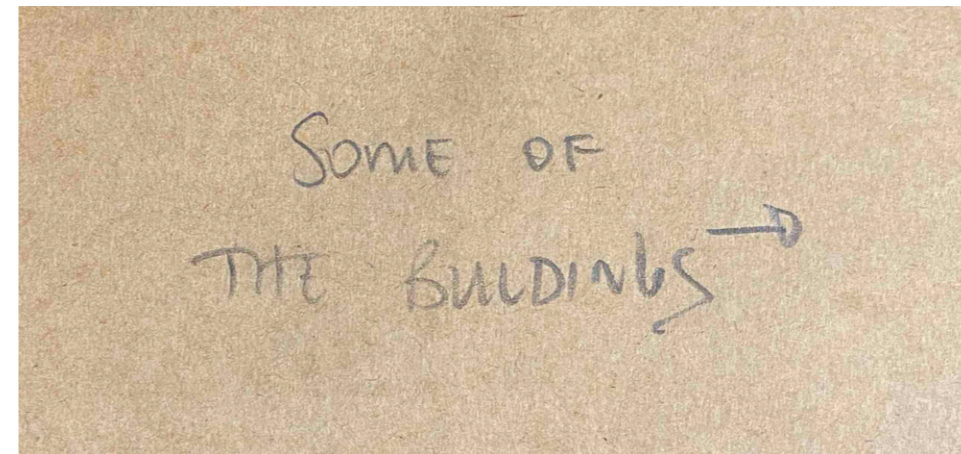 SOME OF
THE BUILDINGS →